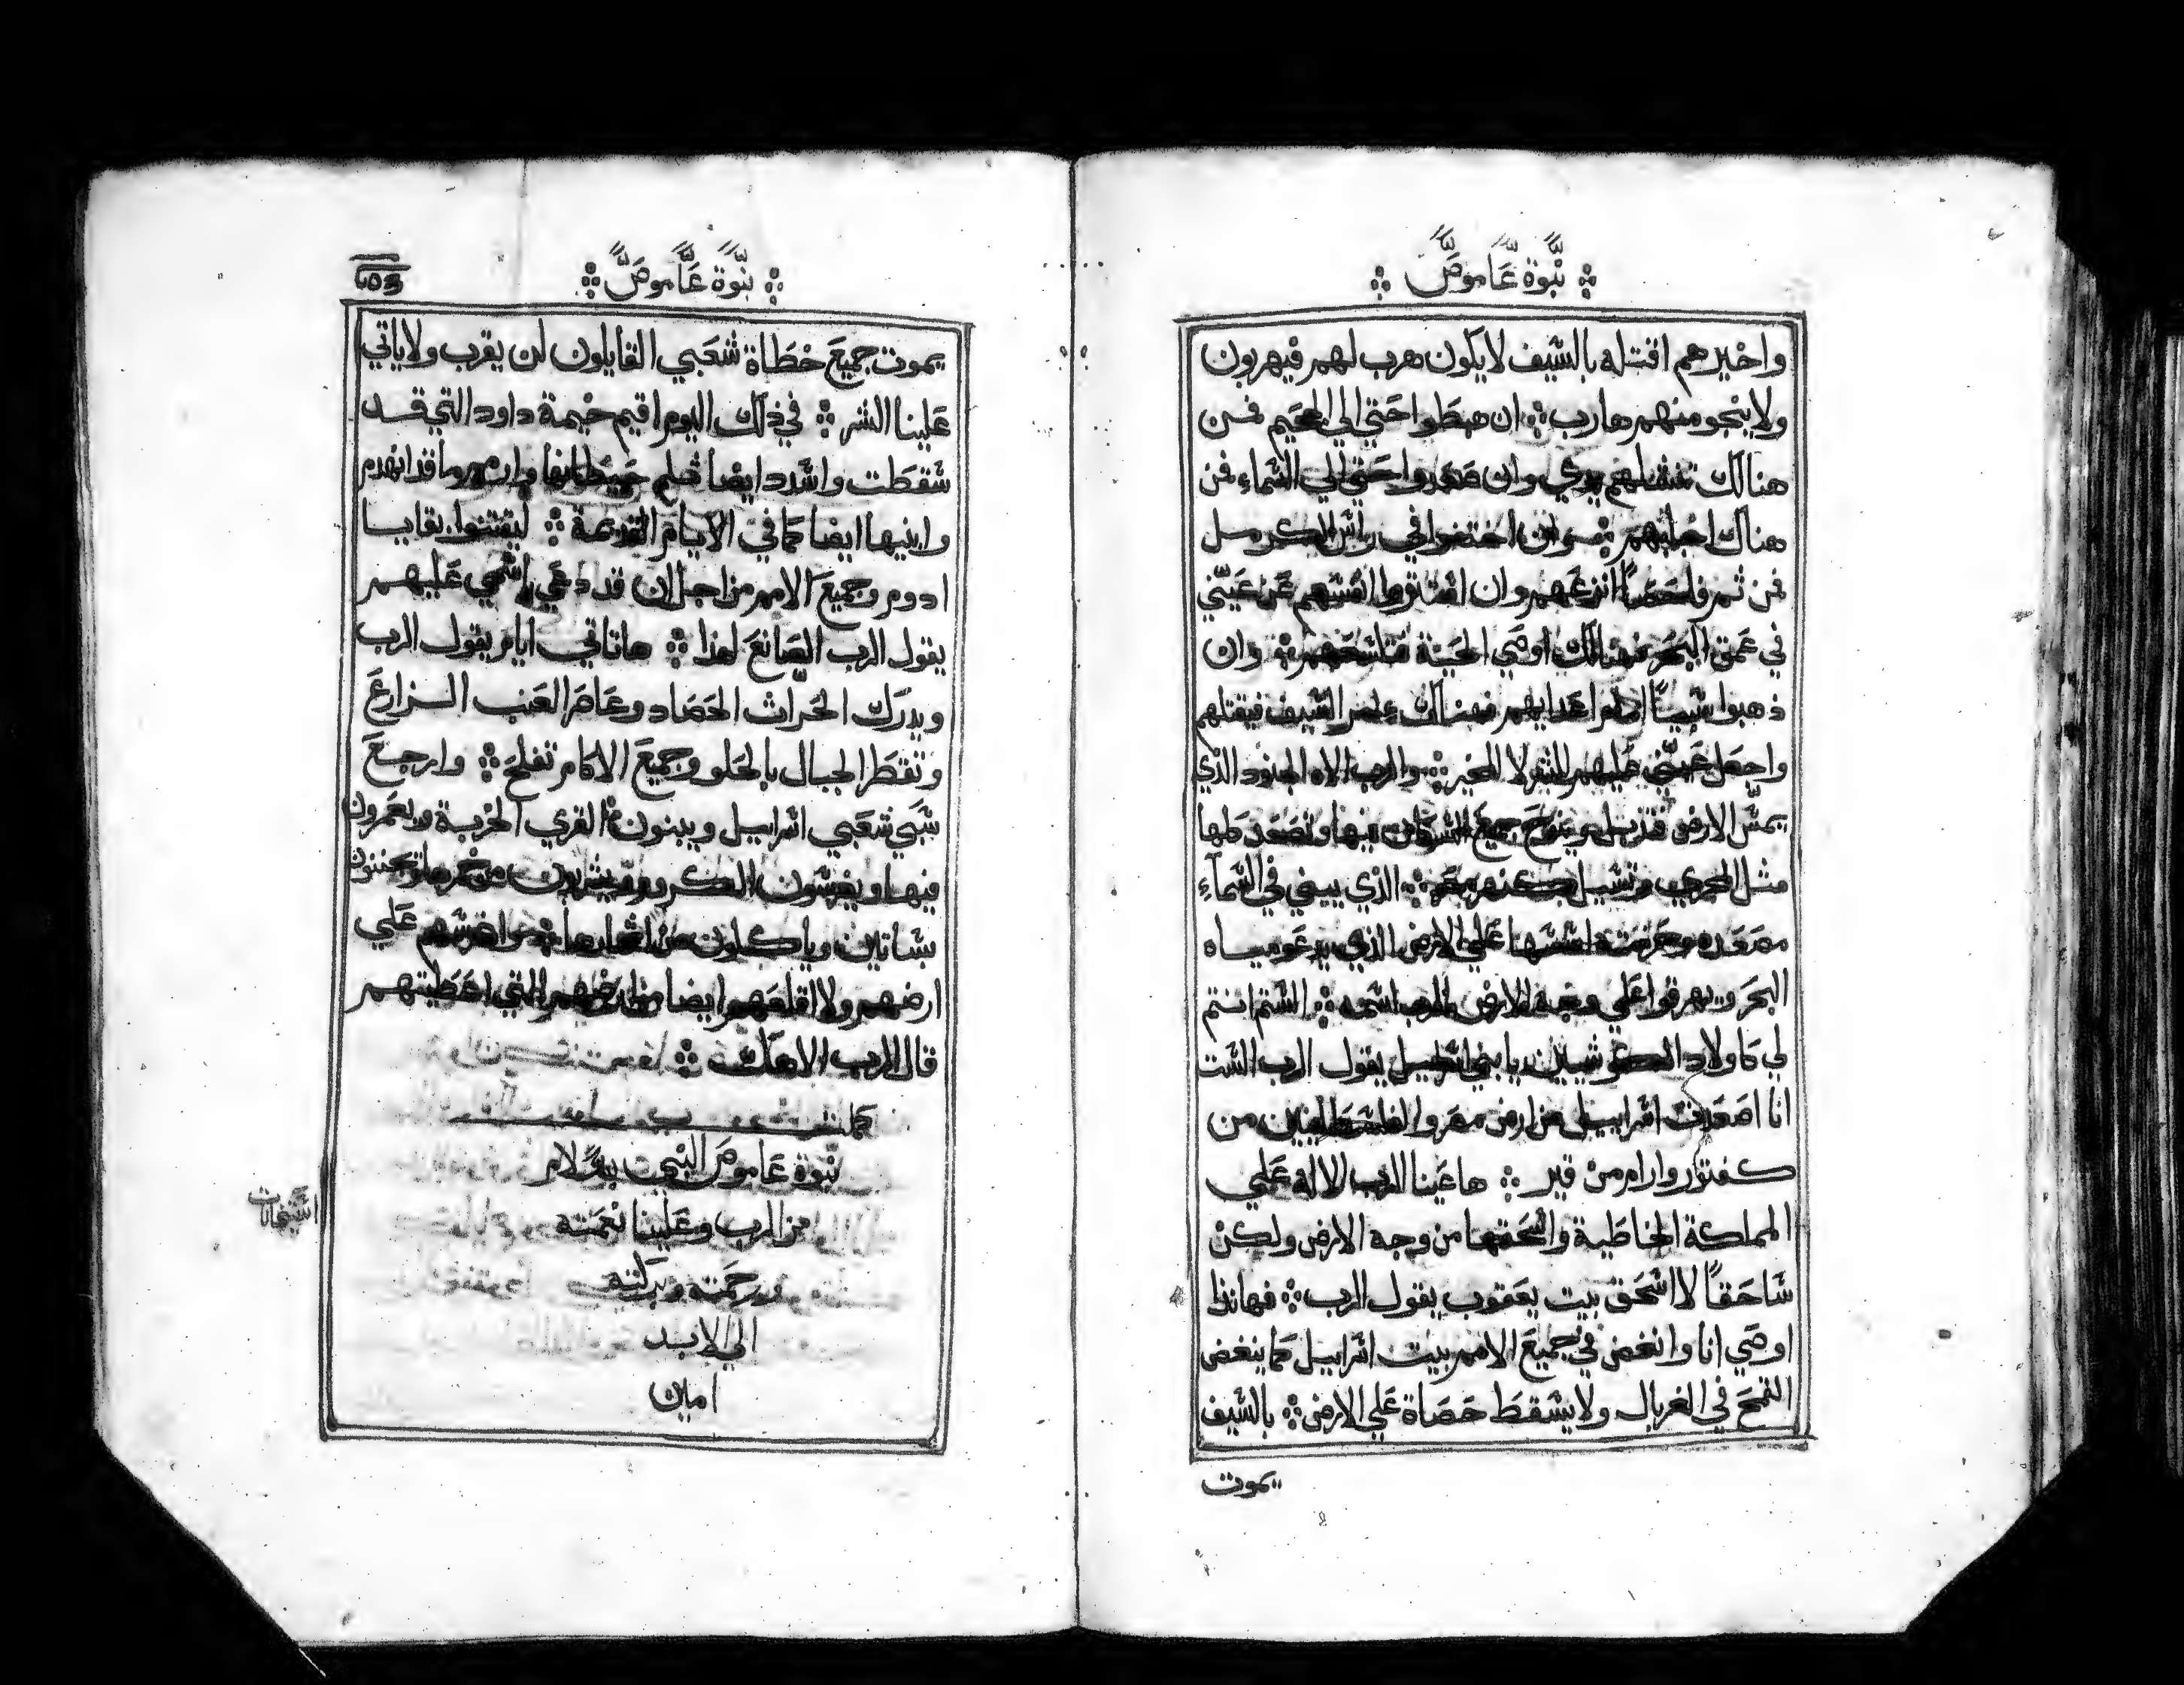 نبوة عاموص
واخيرهم اقتله بالسيف لا يكون هرب لهم فيهربون
ولا ينجو منهم هارب ان هبطوا حتي الي الجحيم فمن
هنالك تنشلهم يدي وان صعدوا حتي الي السماء فمن
هناك احطهم وان اختفوا في راس الكرمل
فمن ثم فاحصًا انزعهم وان استتروا انفسهم عن عيني
في عمق البحر فهنالك اوصي الحية فتلسعهم وان
ذهبوا سبيًا امام اعدايهم فهنالك امر السيف فيقتلهم
واجعل عيني عليهم للشر لا للخير والرب الاه الجنود الذي
يمس الارض فتذبل وينوح جميع السكان فيها وتصعد كلها
مثل المجري وتسيل كنهر مصر الذي يبني في السماء
مصعده وحزمته اسسها علي الارض الذي يدعو مياه
البحر ويهرقها علي وجه الارض الرب اسمه الستم انتم
لي كاولاد الكوشيين يا بني اسراييل يقول الرب الست
انا اصعدت اسراييل من ارض مصر والفلسطانيين من
كفتور وارام من قير ها عينا الرب الاله علي
المملكة الخاطية واسحقها من وجه الارض ولكن
ساحقًا لا اسحق بيت يعقوب يقول الرب فهانذا
اوصي انا وانغض في جميع الامم بيت اسراييل كما ينغض
القمح في الغربال ولا يسقط حصاة علي الارض بالسيف
يموت
نبوة عاموص
يموت جميع خطاة شعبي القايلون لن يقرب ولا ياتي
علينا الشر في ذلك اليوم اقيم خيمة داود التي قد
سقطت واشدد ايضا ثلم حيطانها وارمم ما قد انهدم
وابنيها ايضا كما في الايام القديمة ليقتنوا بقايا
ادوم وجميع الامم من اجل ان قد دعي باسمي عليهم
يقول الرب الصانع لهذا ها تاتي ايام يقول الرب
ويدرك الحراث الحصاد وعاصر العنب الزارع
وتقطر الجبال بالحلو وجميع الاكام تفلح وارجع
سبي شعبي اسراييل ويبنون القري الخربة ويعمرون
فيها ويغرسون الكروم ويشربون من خمرها ويجننون
بساتين وياكلون من اثمارها واغرسهم علي
ارضهم ولا اقلعهم ايضا من ارضهم التي اعطيتهم
قال الرب الاهك
كملت
نبوة عاموص النبي بسلام
من الرب وعلينا نعمته
ورحمته وبركته
الي الابد
امين